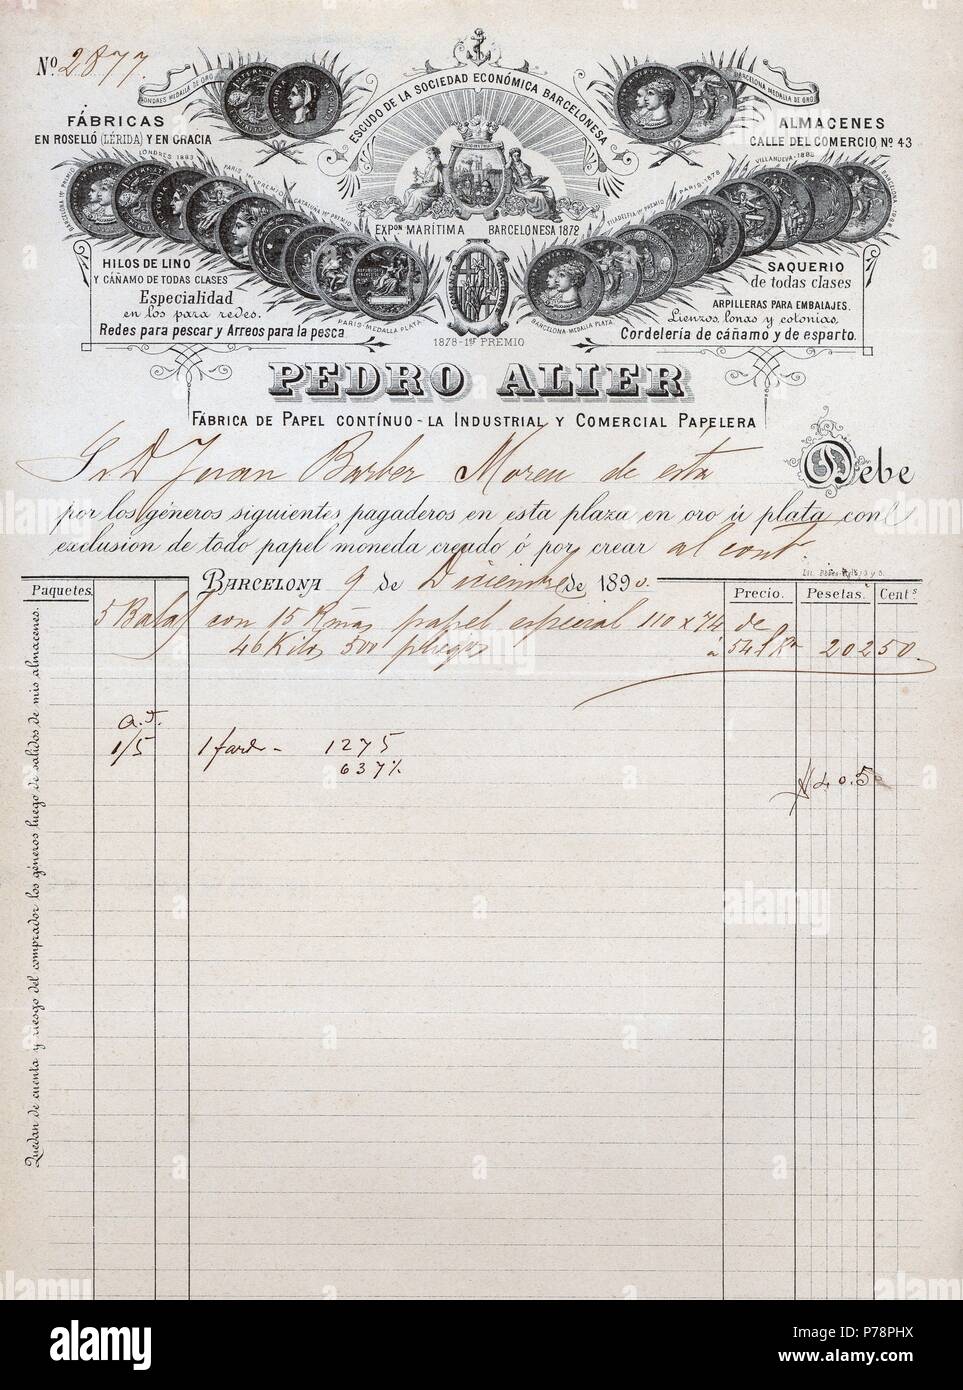 Nº 2877.
LONDRES MEDALLA DE ORO
ESCUDO DE LA SOCIEDAD ECONÓMICA BARCELONESA
BARCELONA MEDALLA DE ORO
FÁBRICAS
EN ROSELLÓ (LÉRIDA) Y EN GRACIA
ALMACENES
CALLE DEL COMERCIO, Nº 43
LONDRES 1883
VILLANUEVA-1882
PARIS-1878
FILADELFIA 1er PREMIO
EXPON MARÍTIMA BARCELONESA 1872
HILOS DE LINO
Y CÁÑAMO DE TODAS CLASES
Especialidad
en los para redes.
Redes para pescar y Arreos para la pesca
SAQUERIO
de todas clases
ARPILLERAS PARA EMBALAJES.
Lienzos, lonas y colonias,
Cordelería de cáñamo y de esparto.
PARIS-MEDALLA PLATA
BARCELONA-MEDALLA PLATA
1878-1er PREMIO
PEDRO ALIER
FÁBRICA DE PAPEL CONTÍNUO - LA INDUSTRIAL Y COMERCIAL PAPELERA
Sr D Juan Barber Moreu de esta Debe
por los géneros siguientes pagaderos en esta plaza en oro ú plata con
exclusion de todo papel moneda creado ó por crear al cont.
BARCELONA 9 de Diciembre de 1890.
Paquetes. Precio. Pesetas. Cents
5 Balas con 15 Rmas papel especial 110 x 74 de
46 Kilos 500 pliegos á 54 l Rª 202 50
a.T.
1/5 1 fard - 1275
637½
40.5
Quedan de cuenta y riesgo del comprador los géneros luego de salidos de mis almacenes.
alamy
Image ID: P78PHX
www.alamy.com